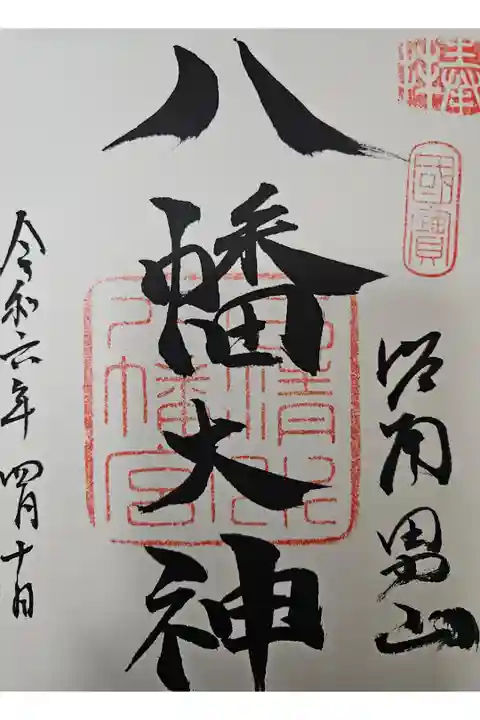 奉拝
國寶
洛南男山
八幡大神
石清水
八幡宮
令和六年四月十日